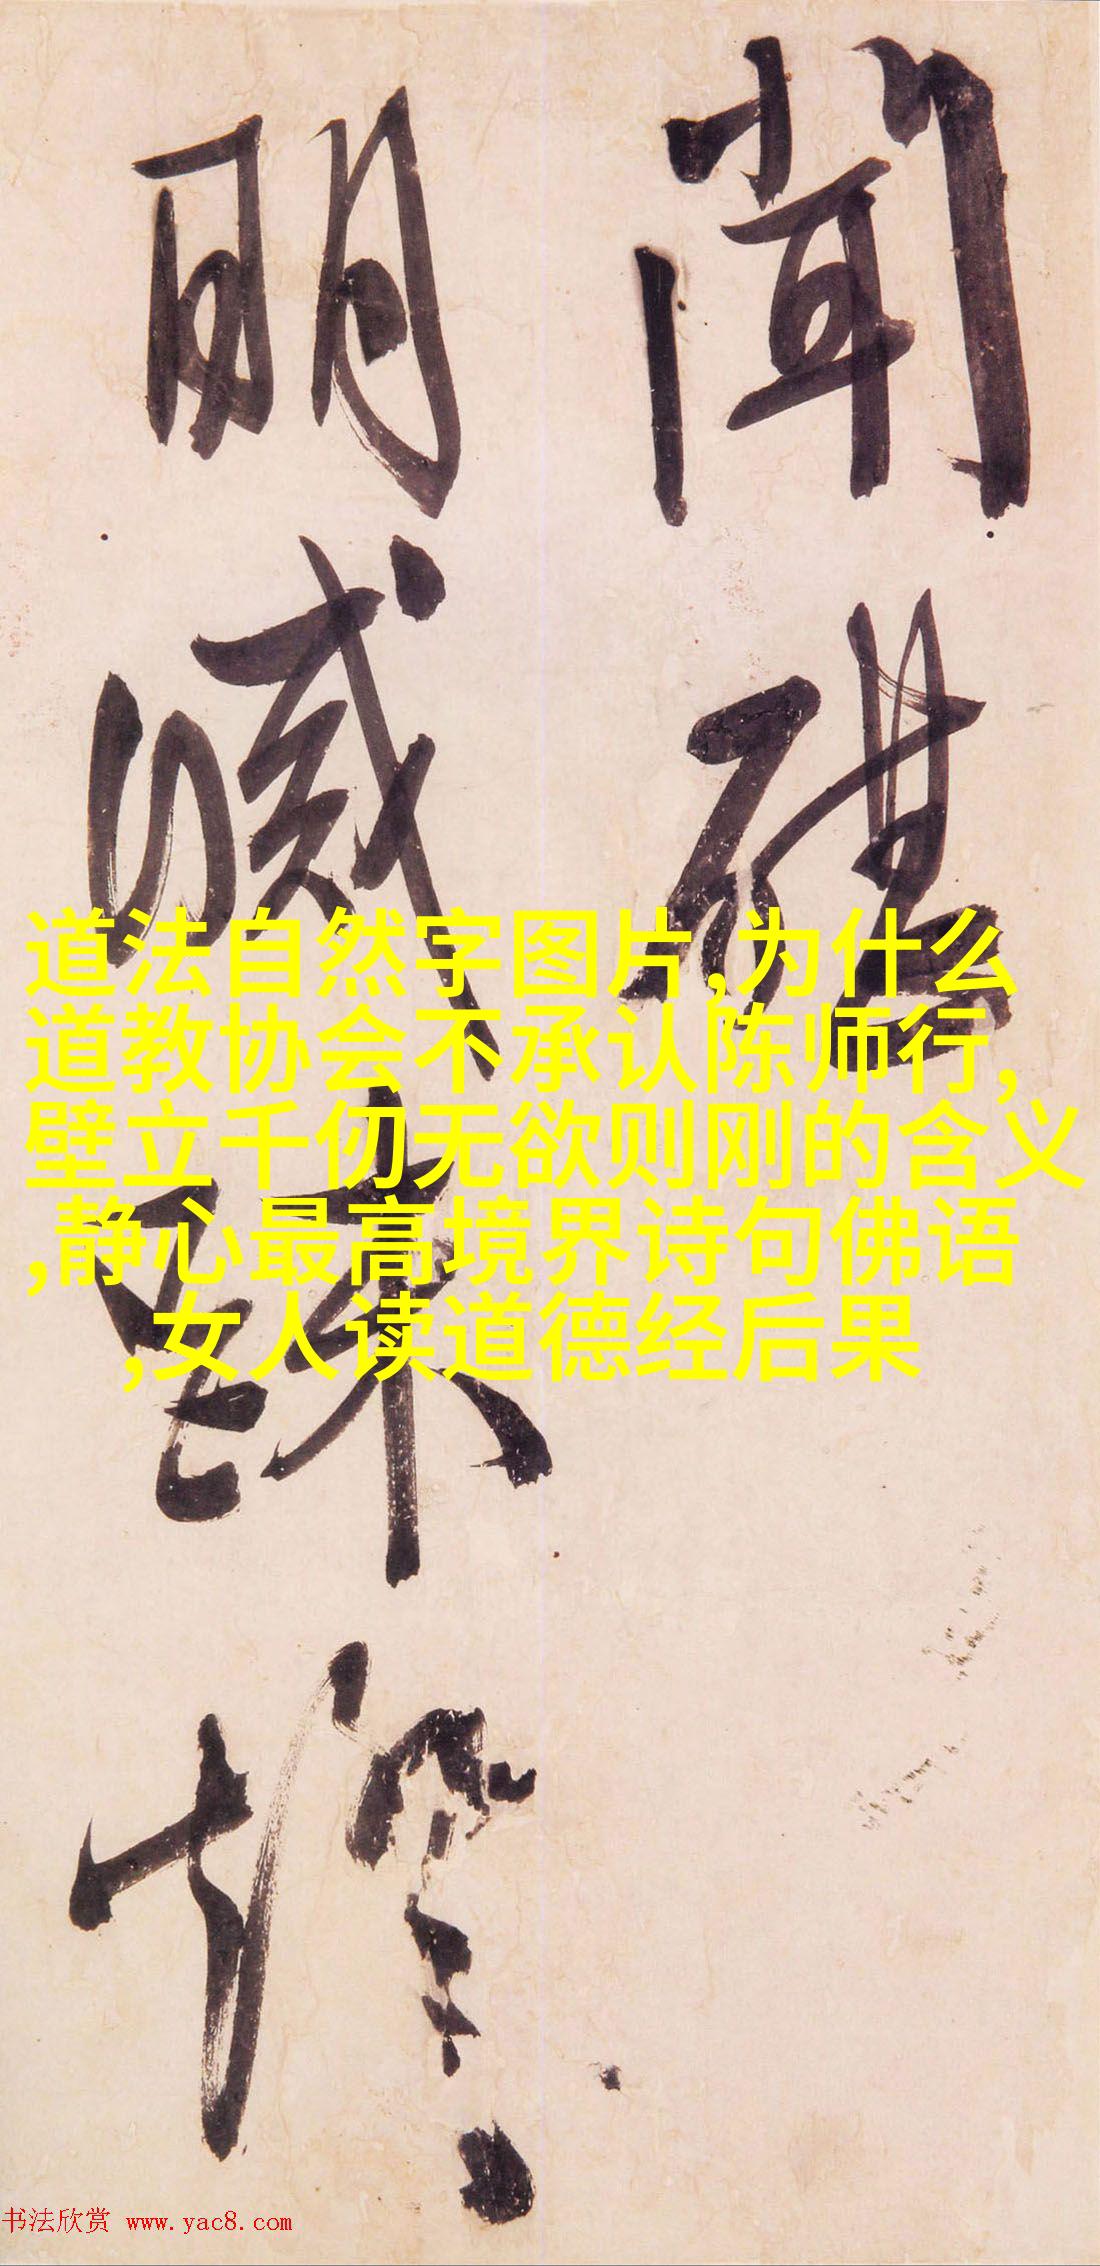 聞
明滅踈燈
道法自然字图片,为什么
道教协会不承认陈师行,
壁立千仞无欲则刚的含义
,静心最高境界诗句佛语
,女人读道德经后果
书法欣赏 www.yac8.com